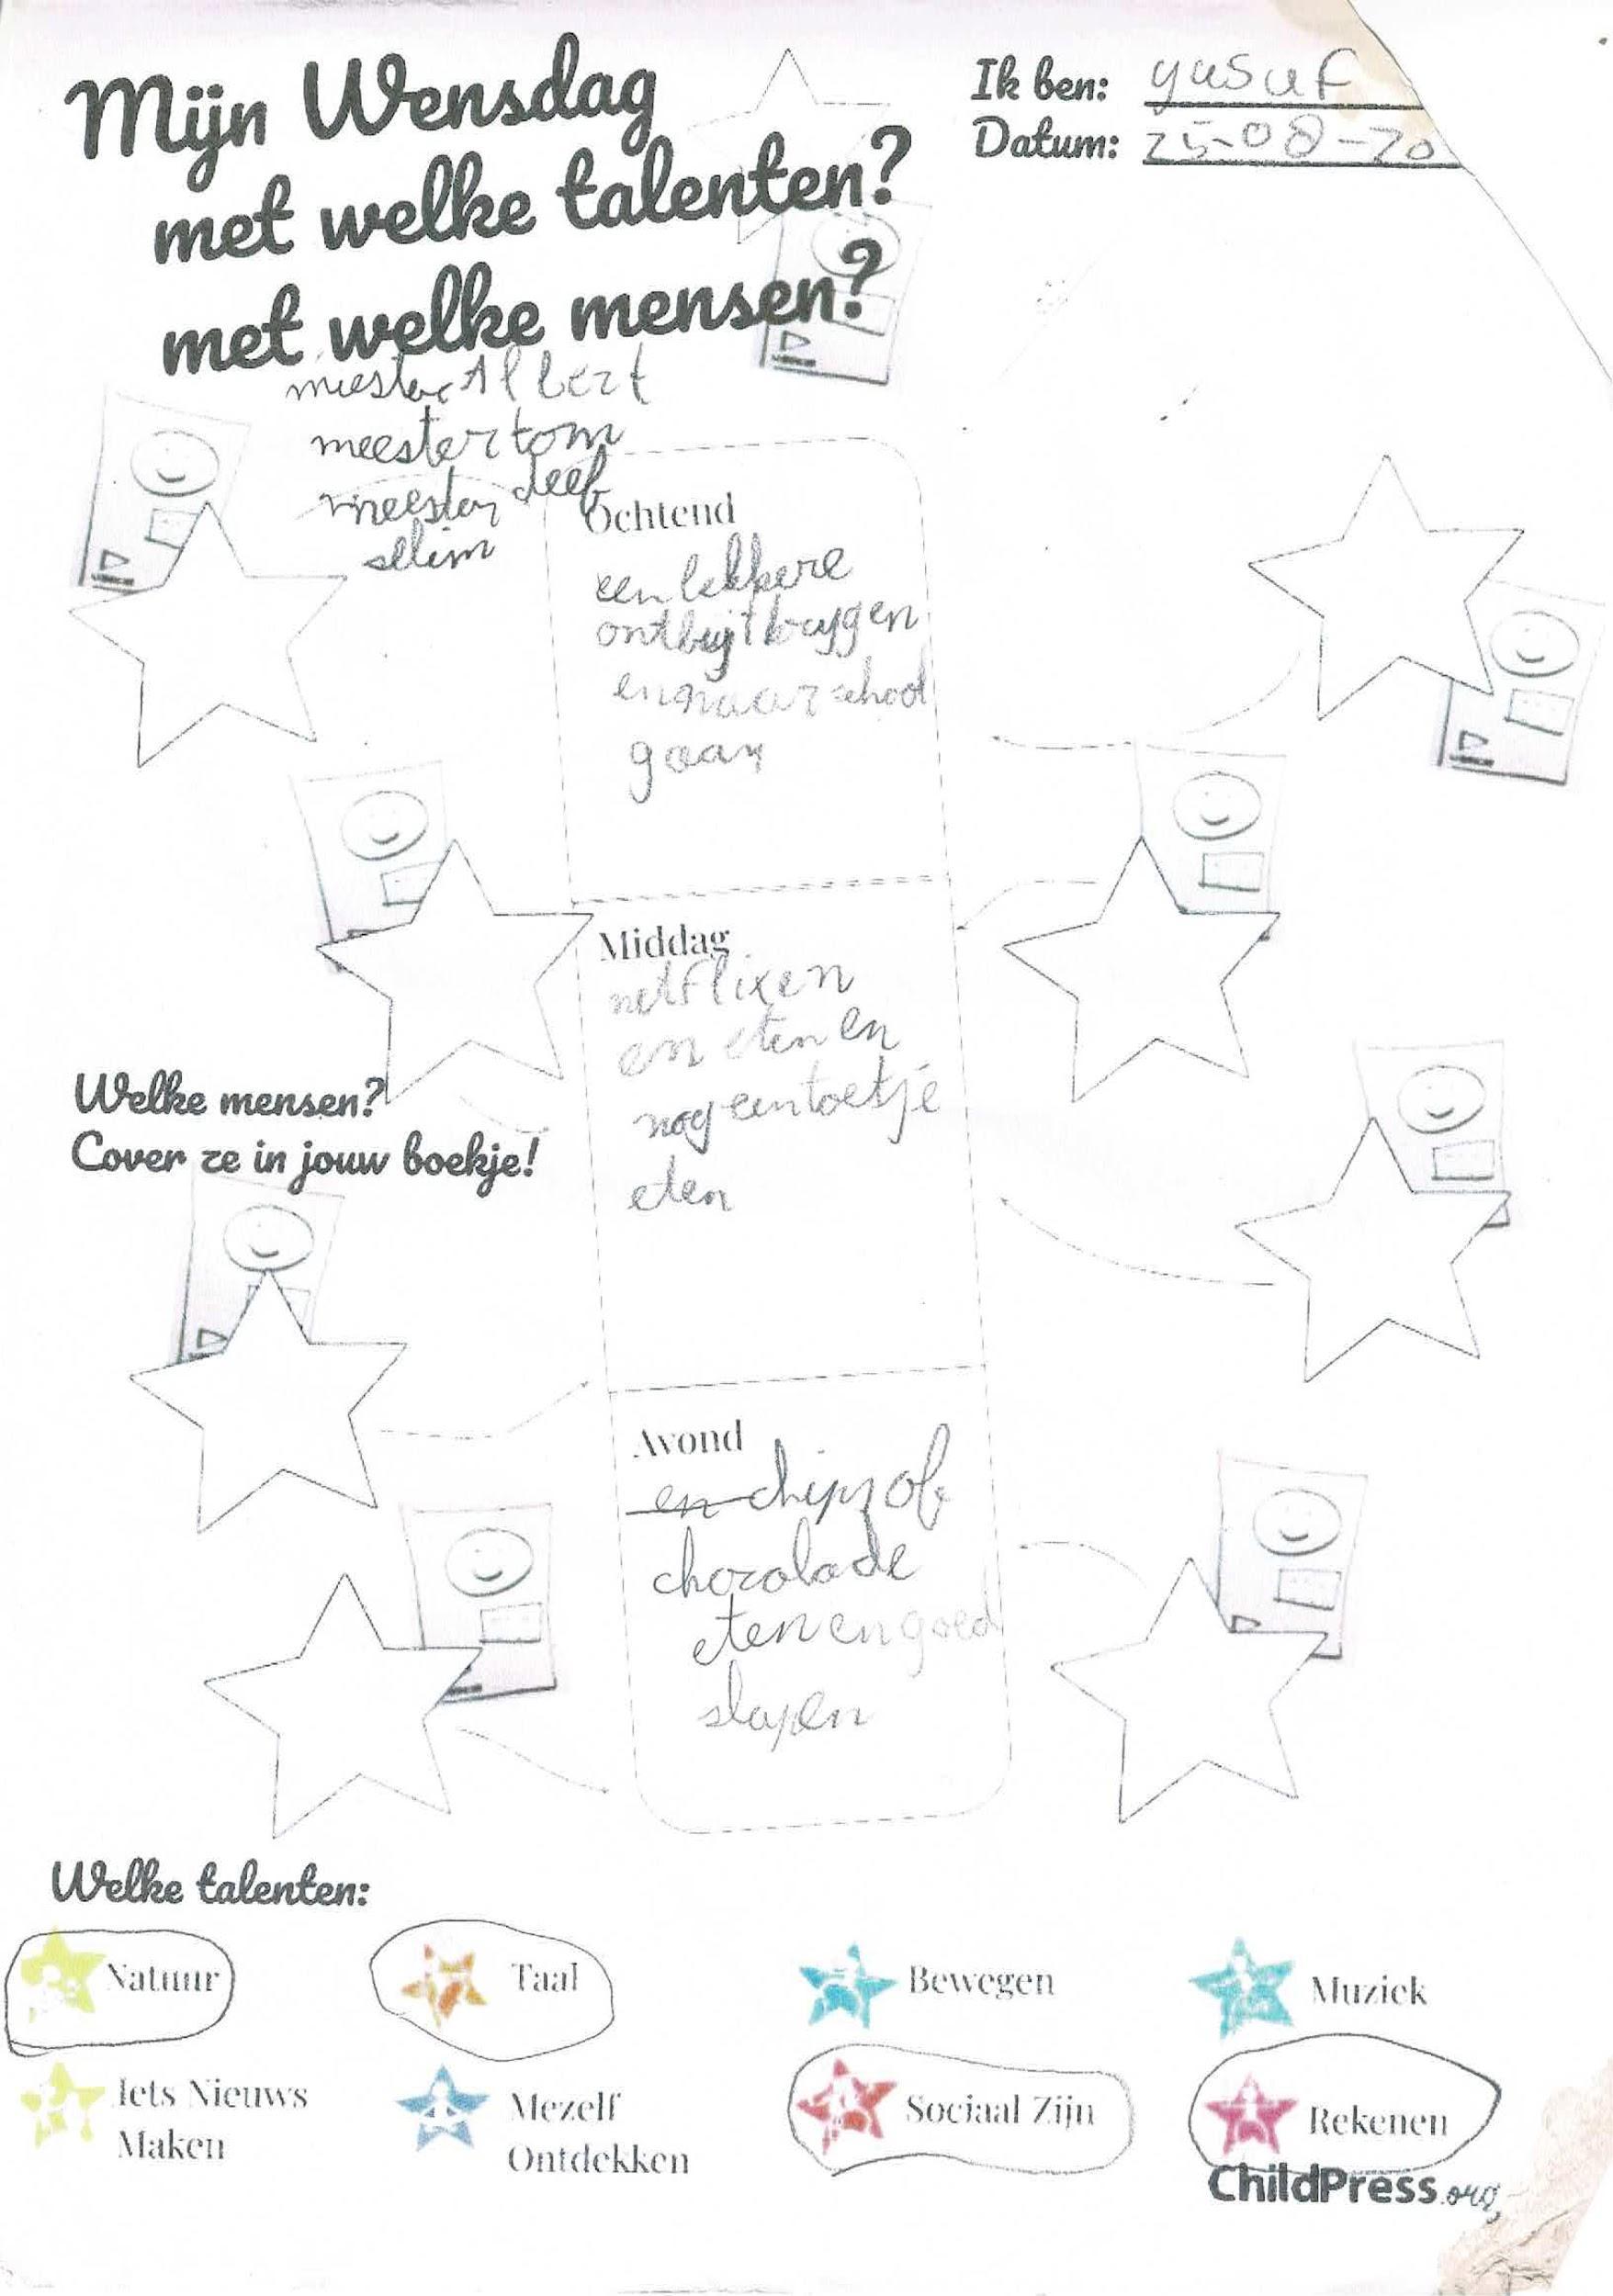 Mijn Wensdag
met welke talenten?
met welke mensen?
Ik ben: yusuf
Datum: 25-08-20
miester Albert
meester tom
meester deef
sllim
Ochtend
een lekkere
ontbijt krijgen
en naar school
gaan
Middag
netflixen
en eten en
nog een toetje
eten
Welke mensen?
Cover ze in jouw boekje!
Avond
en chips of
chocolade
eten en goed
slapen
Welke talenten:
Natuur
Taal
Bewegen
Muziek
Iets Nieuws
Maken
Mezelf
Ontdekken
Sociaal Zijn
Rekenen
ChildPress.org